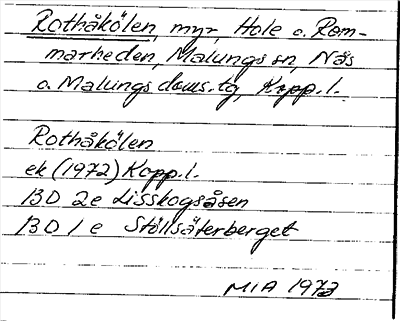 Rothåkölen, myr, Hole o. Rom-
marheden, Malungs sn, Näs
o. Malungs doms.tg, Kopp.l.
Rothåkölen
ek (1972) Kopp.l.
13D 2e Lisskogsåsen
13D 1e Stöllsäterberget
MIA 1973